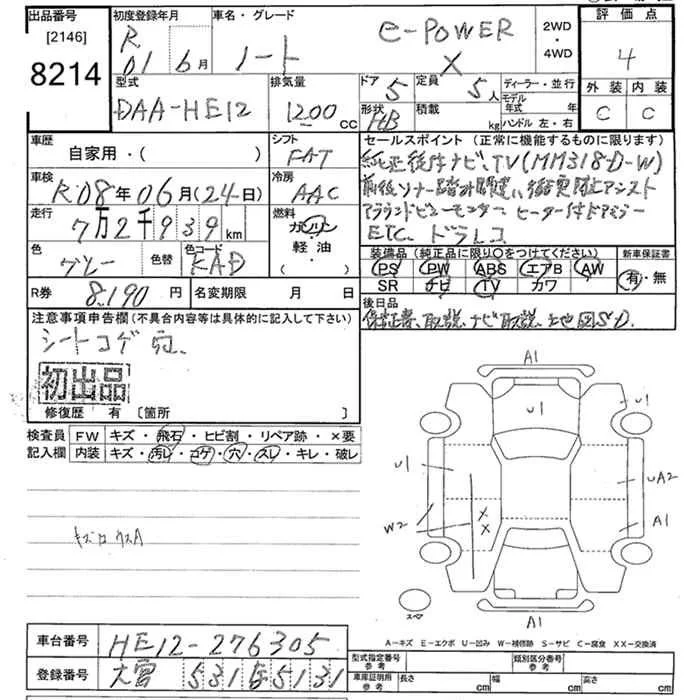 出品番号 初度登録年月 車名・グレード 2WD・4WD 評価点
[2146] R 01年 6月 ノート e-POWER X 4
8214 外装 内装
C C
型式 排気量 ドア 定員 ディーラー・並行
DAA-HE12 1200 CC 5 5人 モデル年式 年
形状 積載 ハンドル 左・右
HB kg
車歴 シフト セールスポイント (正常に機能するものに限ります)
自家用・( ) FAT 純正後付ナビ、TV(MM318D-W)
車検 冷房 前後ソナー踏み間違い衝突防止アシスト
R08年06月(24日) AAC アラウンドビューモニター ヒーター付ドアミラー
走行 燃料 ETC. ドラレコ
7万2千939km ガソリン・軽油・
色 色替 色コード 装備品 (純正品に限り○をつけてください) 新車保証書
グレー KAD PS PW ABS エアB AW 有・無
SR ナビ TV カワ
R券 8,190円 名変期限 月 日 後日品
保証書、取説、ナビ取説、地図SD.
注意事項申告欄 (不具合内容等は具体的に記入して下さい)
シートコゲ穴
初出品
修復歴 有 [箇所 ]
検査員記入欄 FW キズ・飛石・ヒビ割・リペア跡・×要
内装 キズ・汚レ・コゲ・穴・スレ・キレ・破レ
A1
U1
U1
U1
UA2
W2
X
X
A1
スペア
A1
A-キズ E-エクボ U-凹み W-補修跡 S-サビ C-腐食 XX-交換済
車台番号 HE12-276305
登録番号 大宮 531 5131
型式指定番号 参考 類別区分番号 参考
車庫証明用 参考 長さ cm 幅 cm 高さ cm